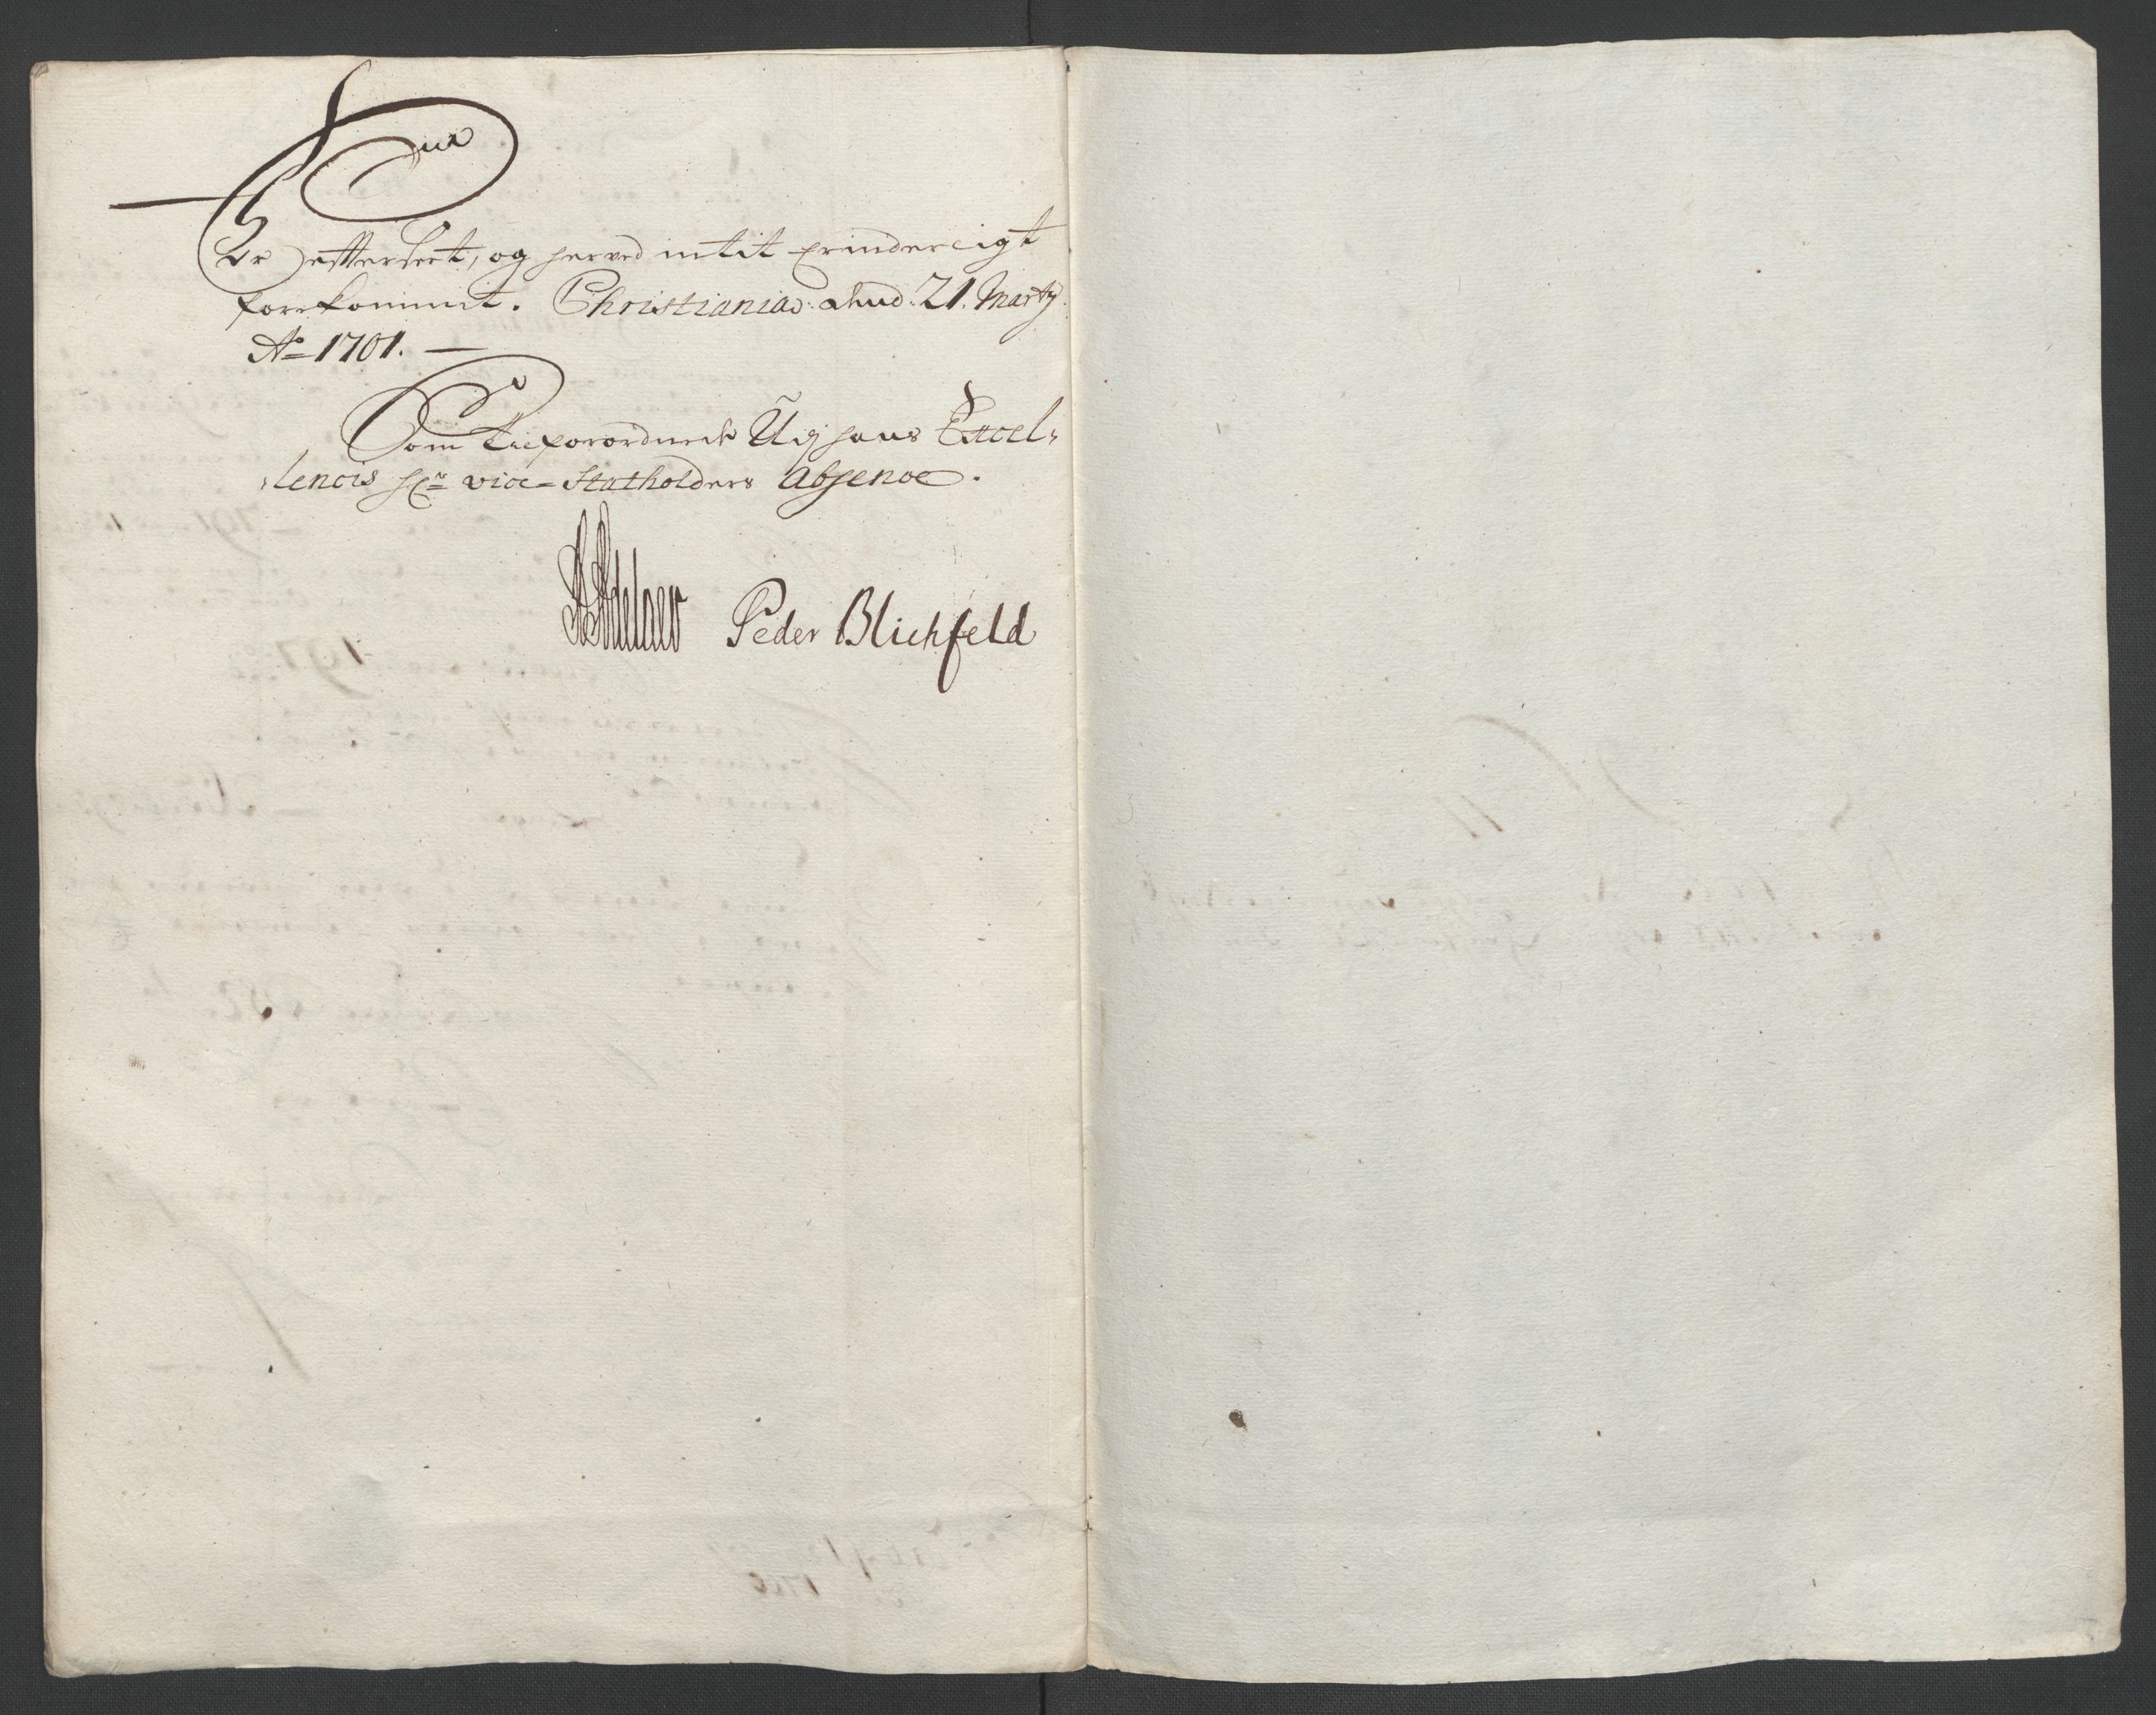 Er efterseet, og herved intet Erinderligt
forrekommet. Christiania d: 21. Marty
Ao 1701.
Som tilforordnede Udj hans Excel-
lencis Hr vice-Statholders Absence.
Peder Blichfeld